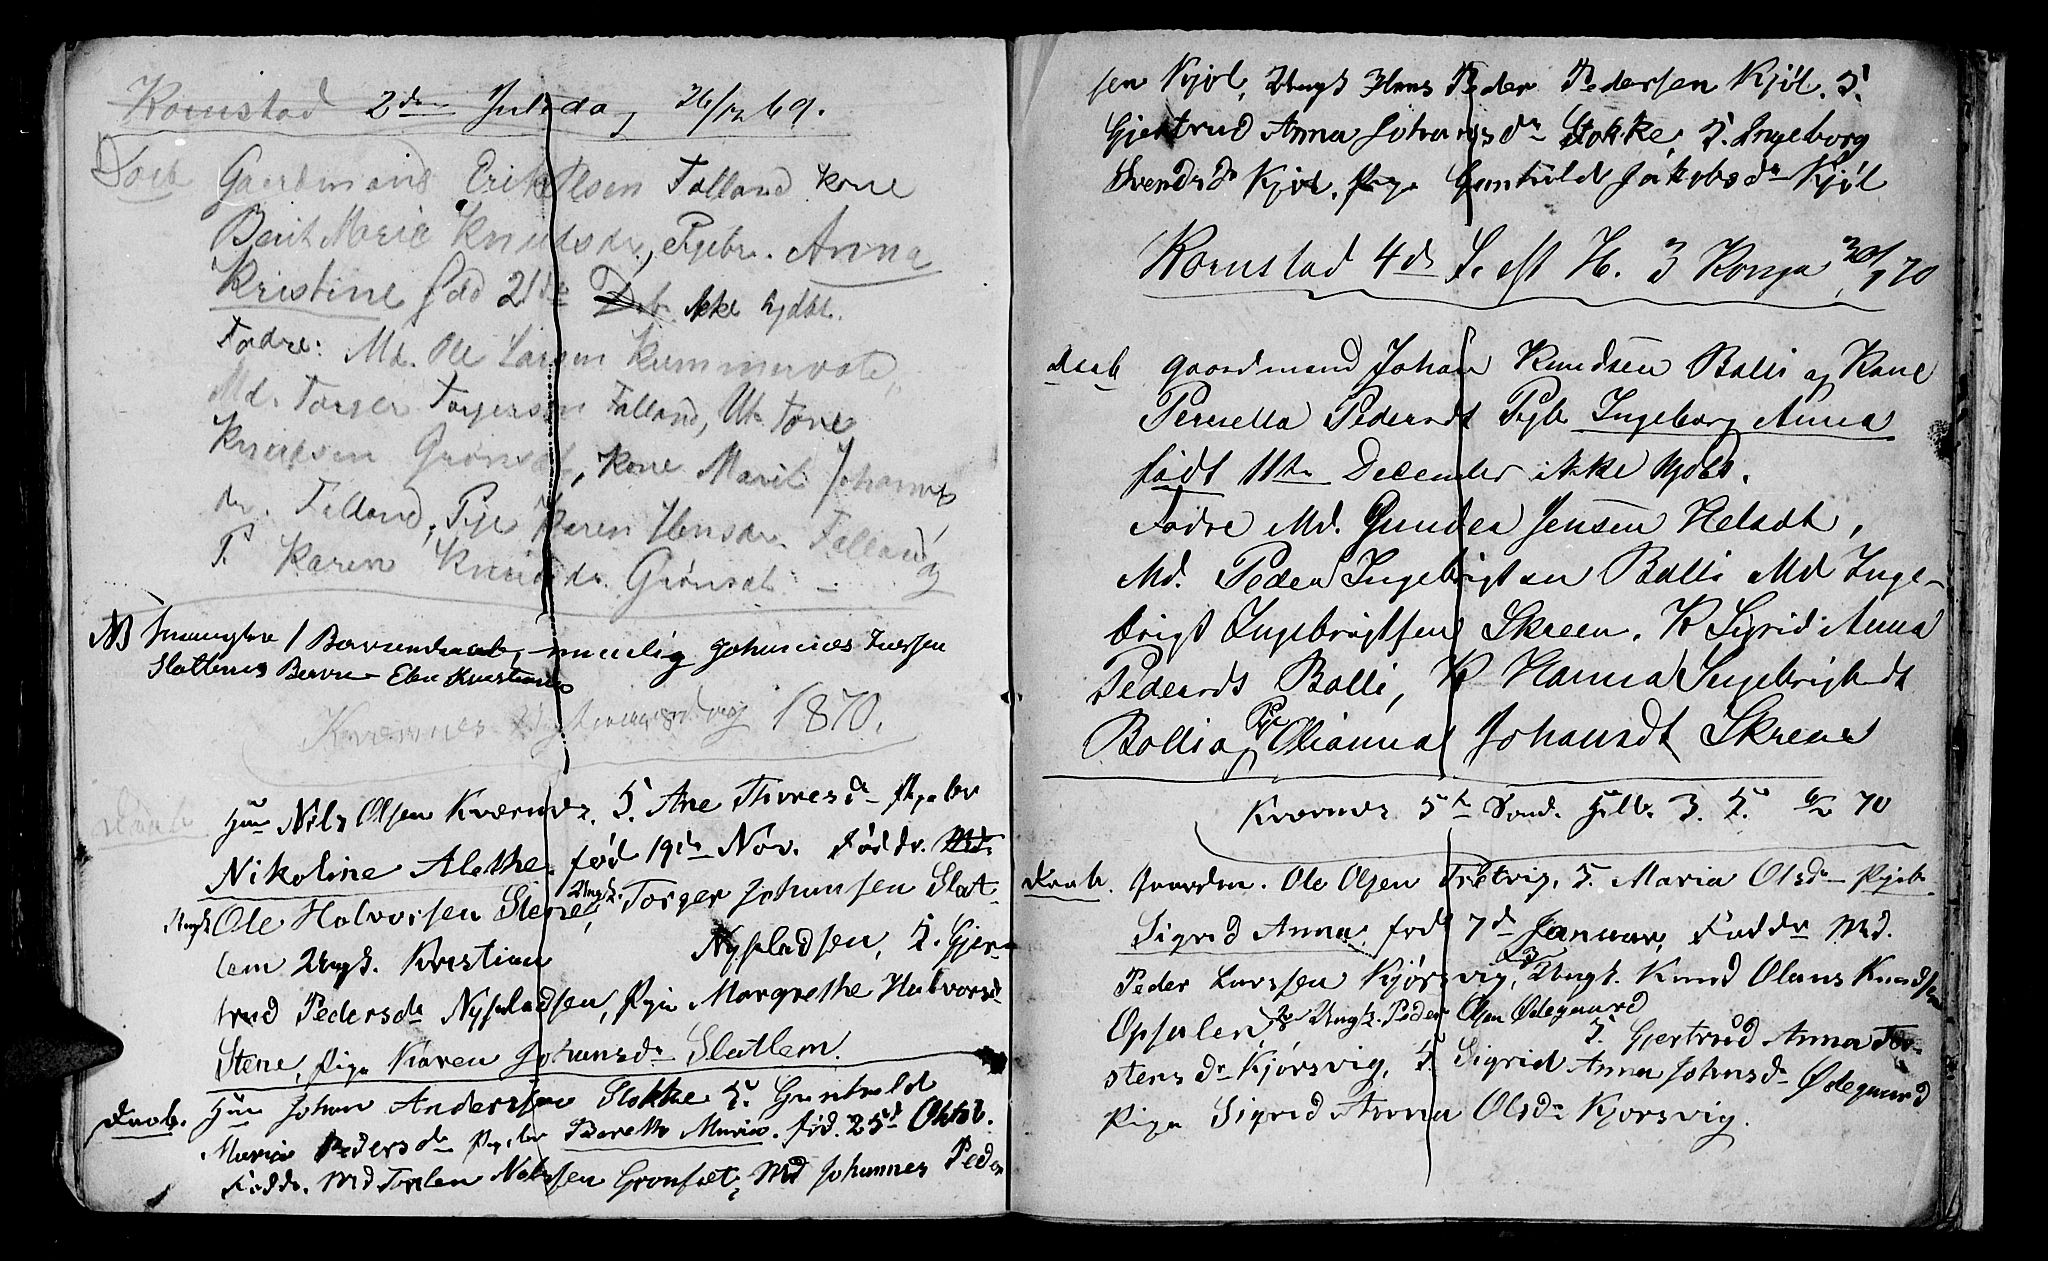 Kornstad 2den Juledag 26/12 69.
Daab Gaardmand Erik Olsen Folland Kone
Berit Marie Knudsdr., Pigebr. Anna
Kristine fød 21de Ikke hjdbt.
Fadre: Md. Ole Larsen Kummervole,
Md. Torger Torgersen Folland, Uk Tore
Knudsen Grønset, Kone Marit Johannes
dr. Folland, Pige Karen Hansdr. Folland
P. Karen Knudsdr. Grønset. —
NB / Barnedaab, nemlig Johannes Iversen
Slattems Barn Elen Kristine
Kvernes Nytaarsdag 1870.
Daab Hm Nils Olsen Kvernes, H. Ane Thoresdr Pigebr
Nikoline Alethe, fød 19de Nov. Faddr. Md.
Ungk. Ole Halvorsen Stene, Ungk. Torger Johansen Slat-
lem Ungk. Kristian Nypladsen, H. Gjer-
trud Pedersdr Nypladsen, Pige Margrethe Halvorsdr
Stene, Pige Karen Johansdr Slatlem.
Daab. Hm Johan Andersen Stokke H. Gunhild
Maria Pedersdr Pigebr Berethe Maria. fød. 25d Oktob.
Faddr. Md Torlen Nilssen Grønset, Md Johannes Peder
sen Kjøl, Ungk Hans Peder Pedersen Kjøl. H.
Gjertrud Anna Johansdr Stokke, H. Ingeborg
Svendsdr Kjøl. Pige Gunhild Jakobsdr Kjøl
Kornstad 4de S. eft H. 3 Konga 30/1 70
Daab Gaardmand Johan Knudsen Bolli og Kone
Pernella Pedersdt Pigb Ingeborg Anna
født 11te December ikke hjdbt.
Fadre Md. Gunder Jensen Helsdt,
Md. Peder Ingebrigtsen Bolli Md Inge-
brigt Ingebrigtsen Skreen. K Sigrid Anna
Pedersdt Bolli, K Hanna Ingebrigtsdt
Bolli og Pige Olianna Johansdt Skreen
Kvernes 5te Sønd. Hell. 3. K. 6/2 70
Daab. Gaardm. Ole Olsen Trætvig, H. Maria Olsdr Pigebr
Sigrid Anna, født 7de Januar, Faddr Md.
Peder Larssen Kjørsvig, Ungk. Knud Olaus Knudsen
Opsalen, Ungk. Peder Olsen Ødegaard
H. Gjertrud Anna Tor-
stensdr Kjørsvig, H. Sigrid Anna Johnsdr Ødegaard
Pige Sigrid Anna Olsdr Kjørsvig.